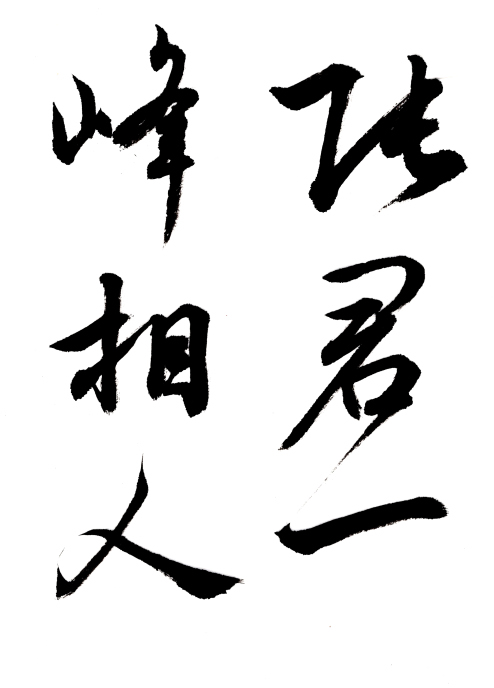 张君一
峰相人